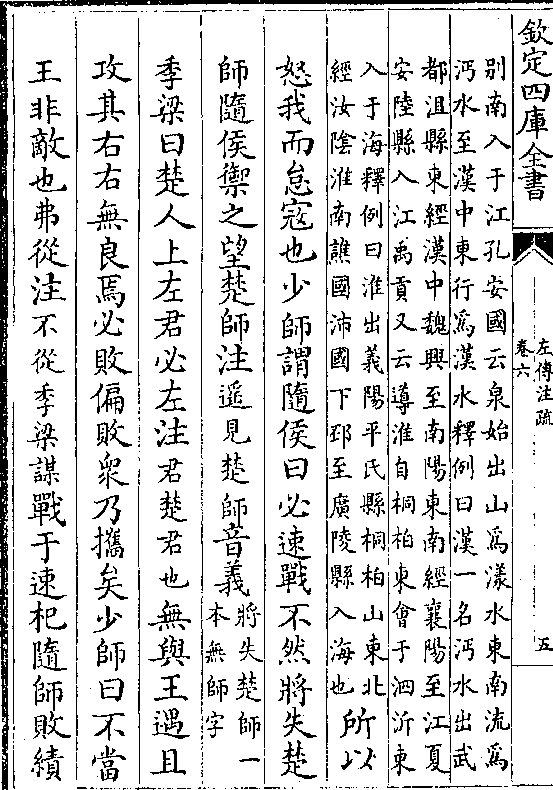 欽定四庫全書
左傳注疏
卷六
五
別南入于江孔安國云泉始出山為漾水東南流為
沔水至漢中東行為漢水釋例曰漢一名沔水出武
都沮縣東經漢中魏興至南陽東南經襄陽至江夏
安陸縣入江禹貢又云導淮自桐柏東會于泗沂東
入于海釋例曰淮出義陽平氏縣桐柏山東北
經汝隂淮南譙國沛國下邳至廣陵縣入海也
所以
怒我而怠寇也少師謂隨侯曰必速戰不然將失楚
師隨侯禦之望楚師注遥見楚師音義
將失楚師一
本無師字
季梁曰楚人上左君必左注君楚君也無與王遇且
攻其右右無良焉必敗偏敗衆乃攜矣少師曰不當
王非敵也弗從注不從季梁謀戰于速杞隨師敗績